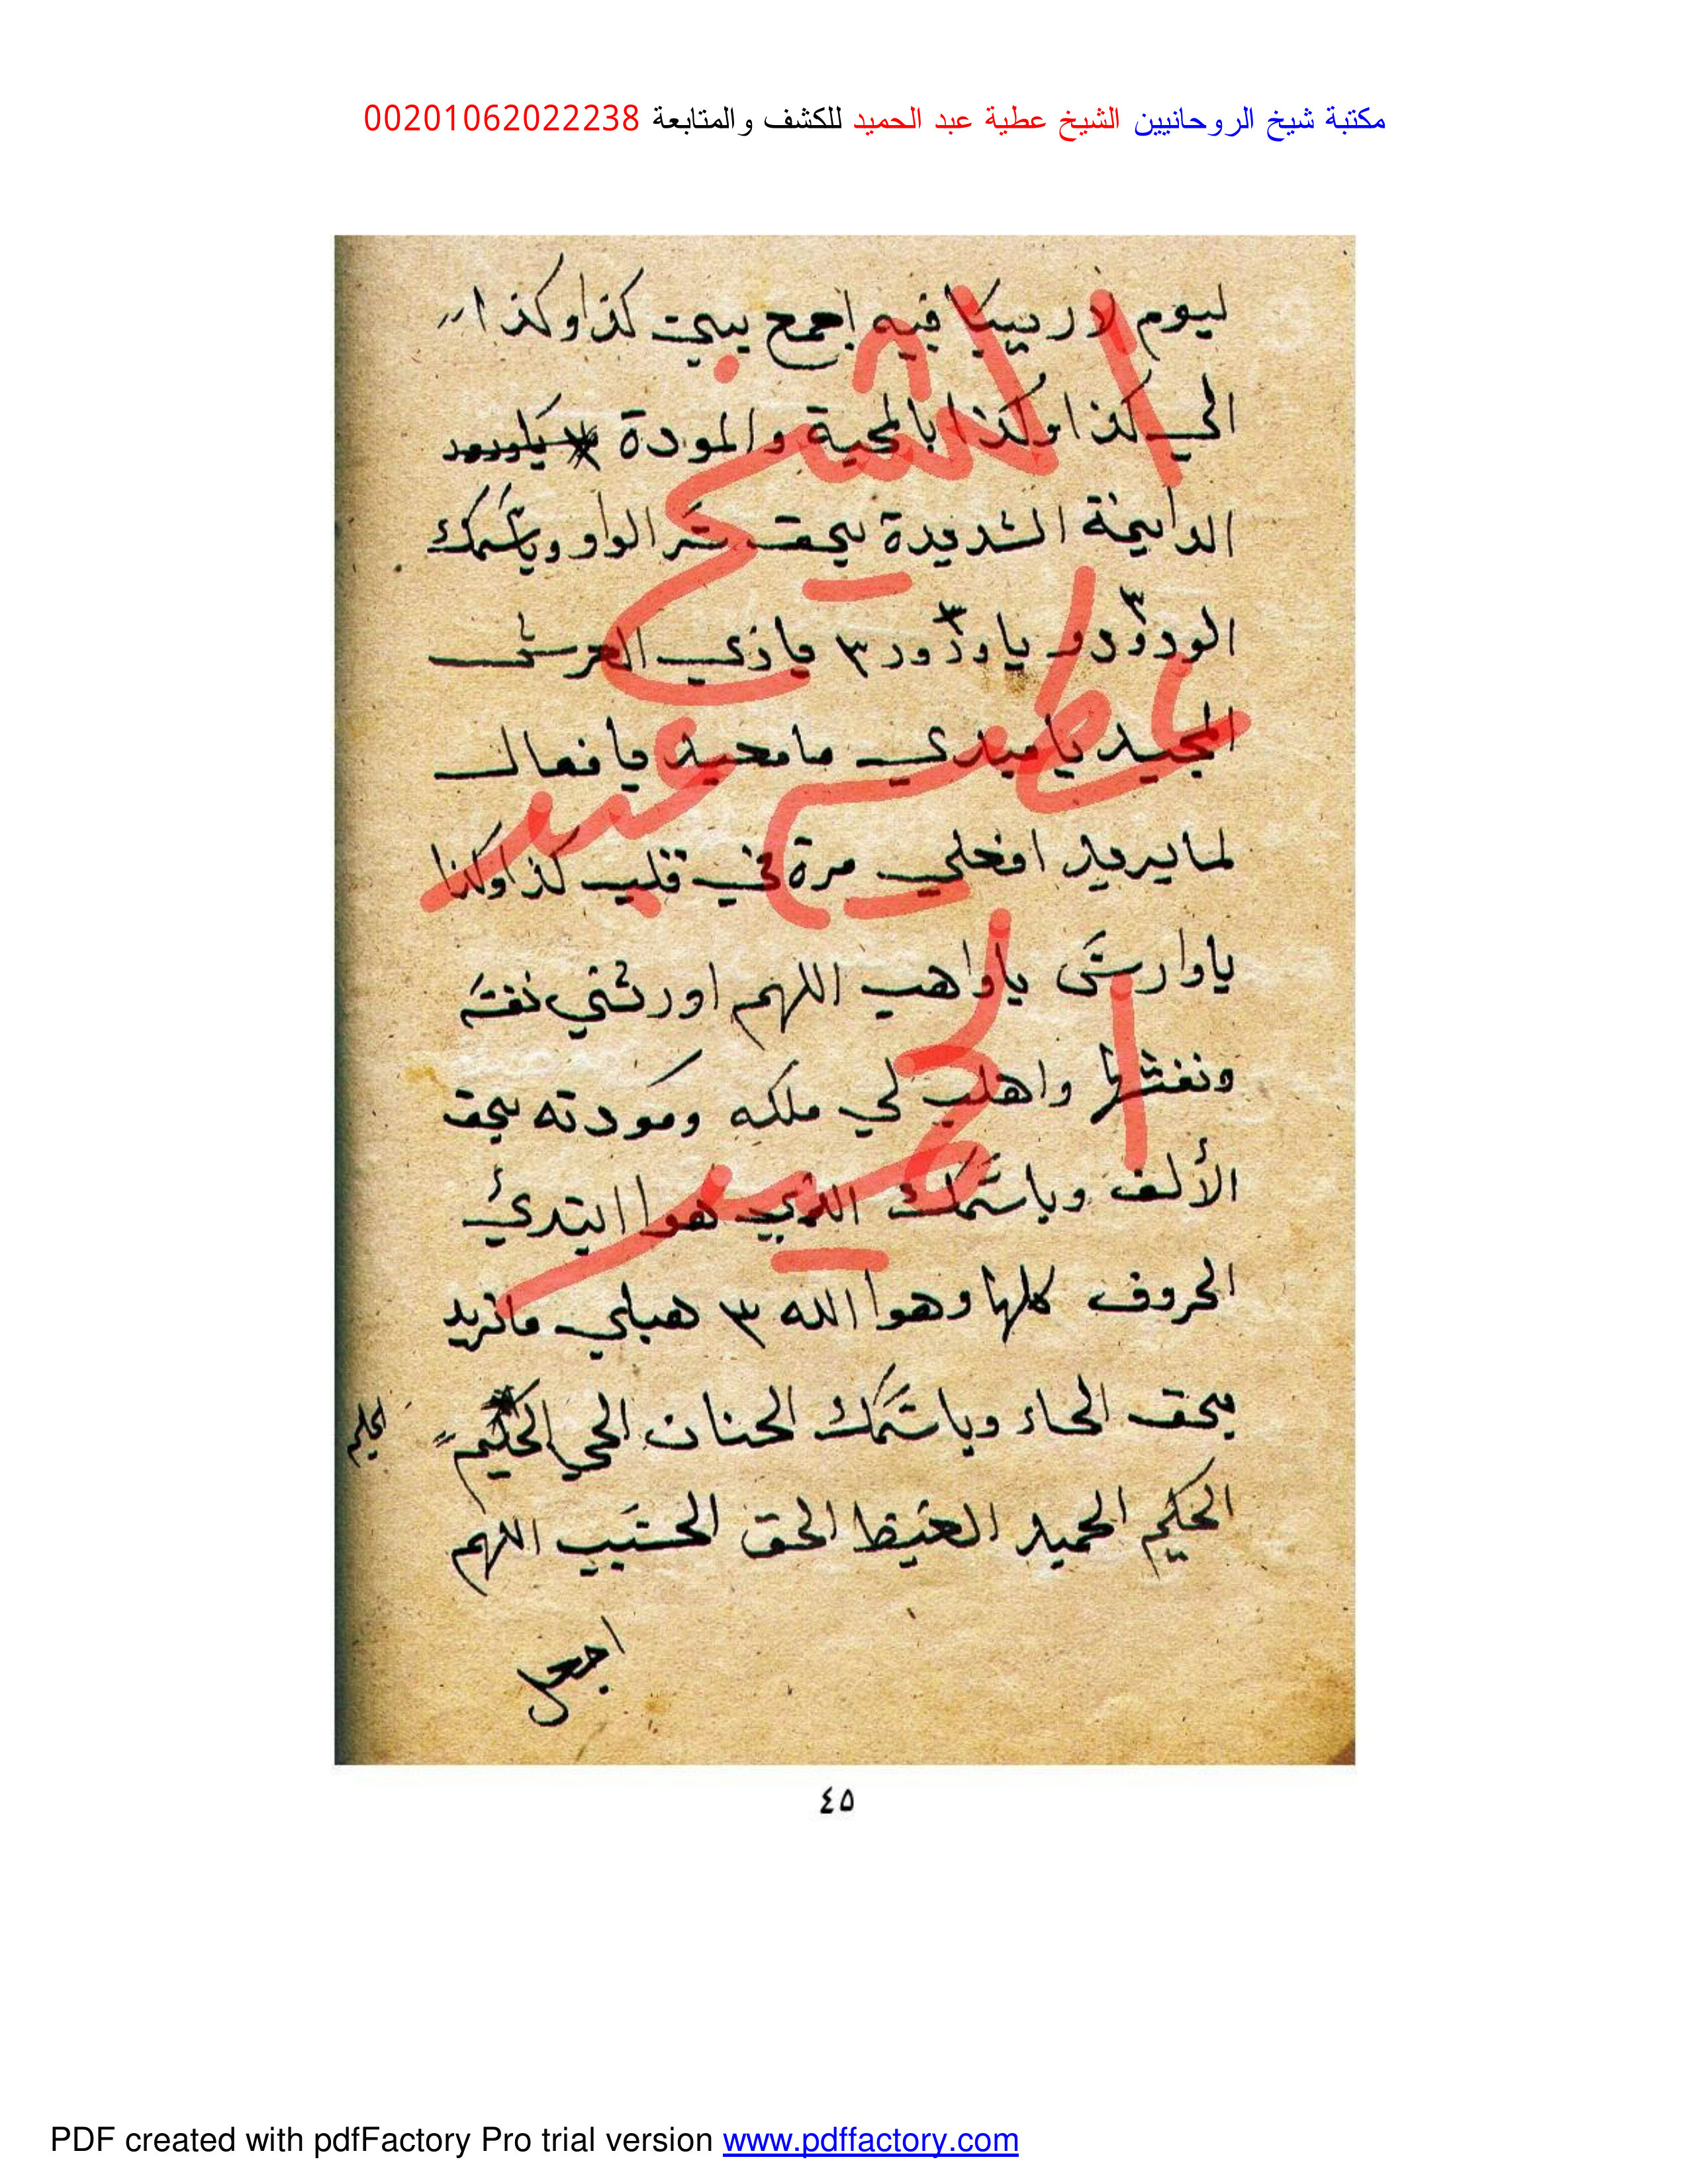 مكتبة شيخ الروحانيين الشيخ عطية عبد الحميد للكشف والمتابعة 00201062022238
ليوم لا ريب فيه اجمع بيني كذا وكذا
الي كذا وكذا بالمحبة والمودة
الدايمة الشديدة بحق سر الواو وباسمك
الودود يا ودود ٣ ياذي العرش
المجيد يا مبدي يا معيد يا فعال
لما يريد افعلي مرة في قلب كذا وكذا
يا وارث يا واهب اللهم اورثني
واهب لي ملكه ومودته بحق
الألف وباسمك الذي هوا ابتدئ
الحروف كلها وهوا الله ٣ هبلي ما نريد
بحق الحاء وباسمك الحنان الحي الحكيم
الحليم
الحكيم الحميد الحفيظ الحق الحسيب اللهم
اجعل
الشيخ
عطية
عبد
الحميد
٤٥
PDF created with pdfFactory Pro trial version www.pdffactory.com